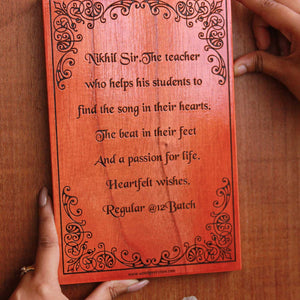 Nikhil Sir.The teacher
who helps his students to
find the song in their hearts.
The beat in their feet
And a passion for life.
Heartfelt wishes,
Regular @12 Batch